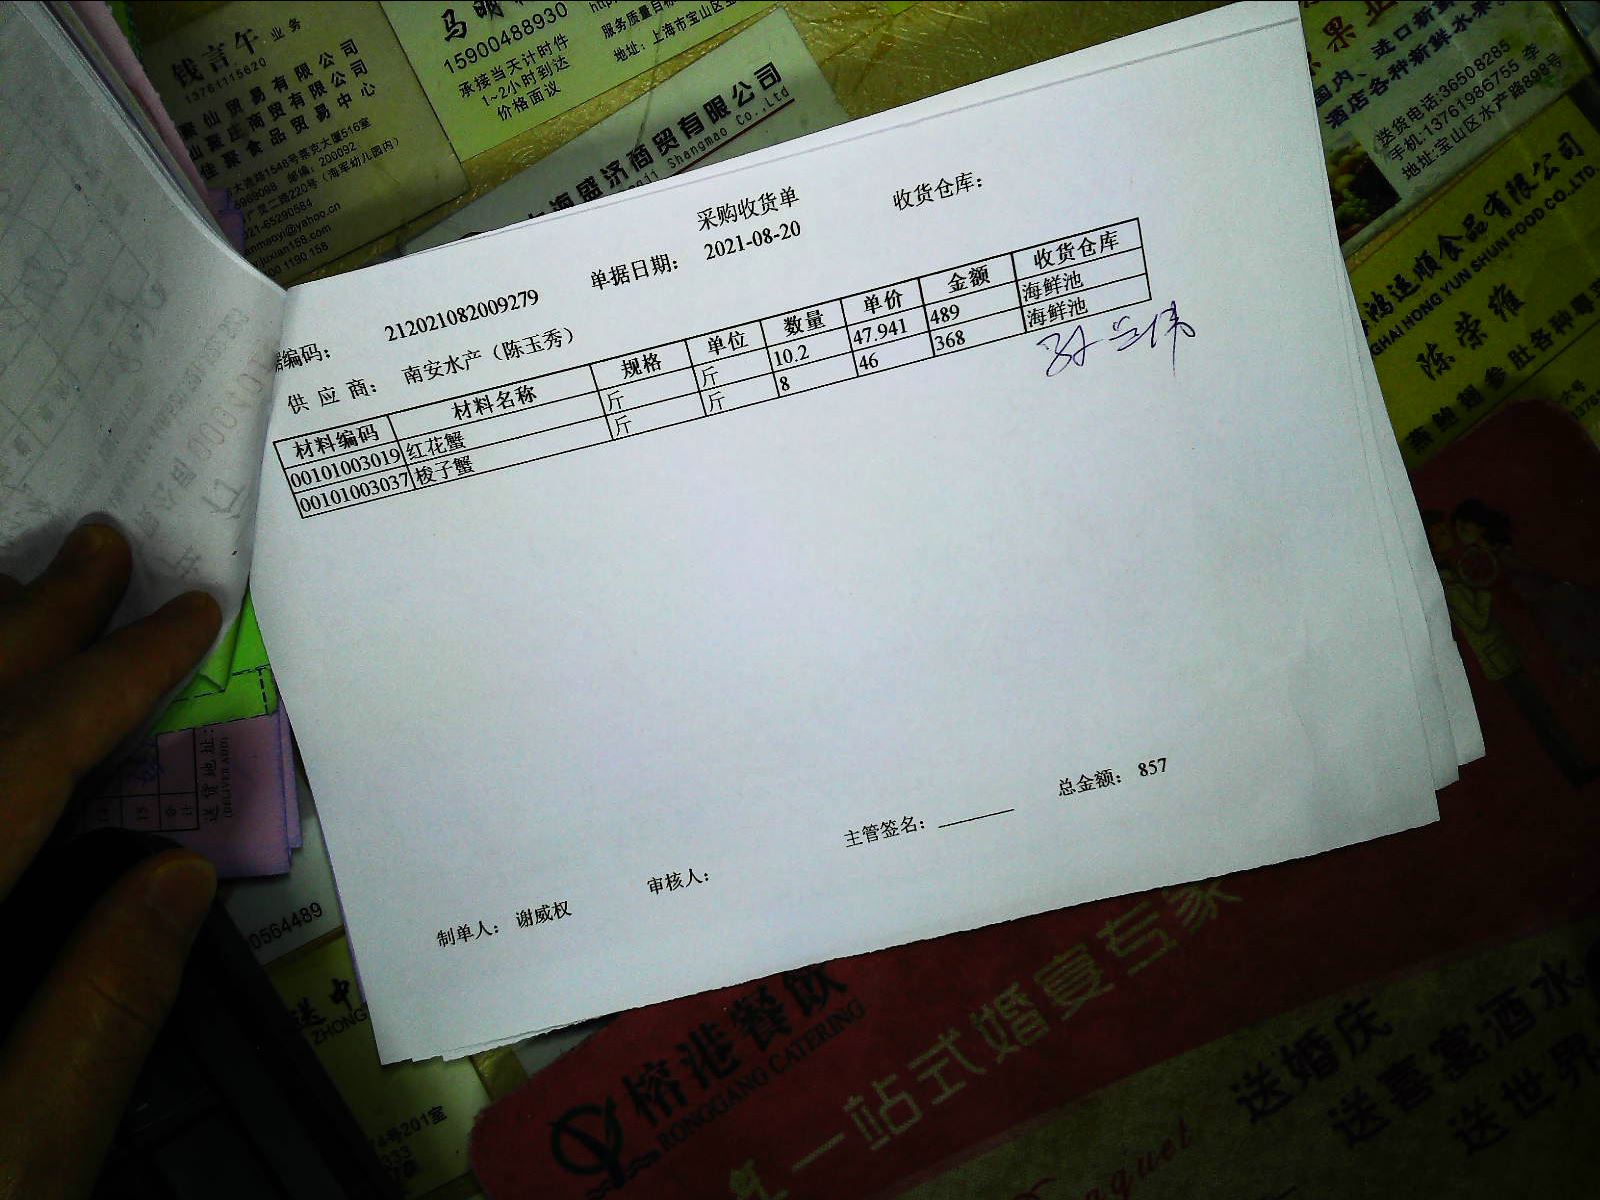 钱言午 业务
13761115620
聚仙贸易有限公司
山聚庄商贸有限公司
佳聚食品贸易中心
邮编：200092
(海军幼儿园内)
021-65290584
15900488930
承接当天计时件
1~2小时到达
价格面议
地址：上海市宝山区
上海盛济商贸有限公司
Shangmao Co.,Ltd
国内、进口新鲜
酒店各种新鲜水果
送货电话:36508285
手机:13761986755 李
地址:宝山区水产路898号
鸿运顺食品有限公司
GHAI HONG YUN SHUN FOOD CO.,LTD.
陈荣雍
燕鲍翅参肚各种
采购收货单
据编码： 212021082009279 单据日期： 2021-08-20 收货仓库：
供 应 商： 南安水产（陈玉秀）
材料编码 材料名称 规格 单位 数量 单价 金额 收货仓库
00101003019 红花蟹 斤 斤 10.2 47.941 489 海鲜池
00101003037 梭子蟹 斤 斤 8 46 368 海鲜池
总金额： 857
主管签名：
审核人：
制单人： 谢威权
送货地址：
(DELIVER ADD)
14
15
合计
0564489
送中
ZHONG
201室
榕港餐饮
RONGGANG CATERING
一站式婚宴专家
送婚庆
送喜宴酒水
送世界